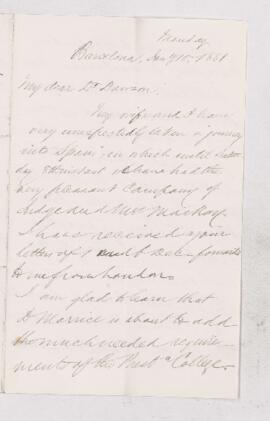 Monday
Barcelona, Jany 10, 1881
My dear Dr Dawson,
My wife and I have
very unexpectedly taken a journey
into Spain, in which until
day we have had the
very pleasant company of
Judge and Mrs MacKay.
I have received your
letter of
to me from London
I am glad to learn that
Dr Morrice is about to add
the much needed require-
ments of the Presbn College.